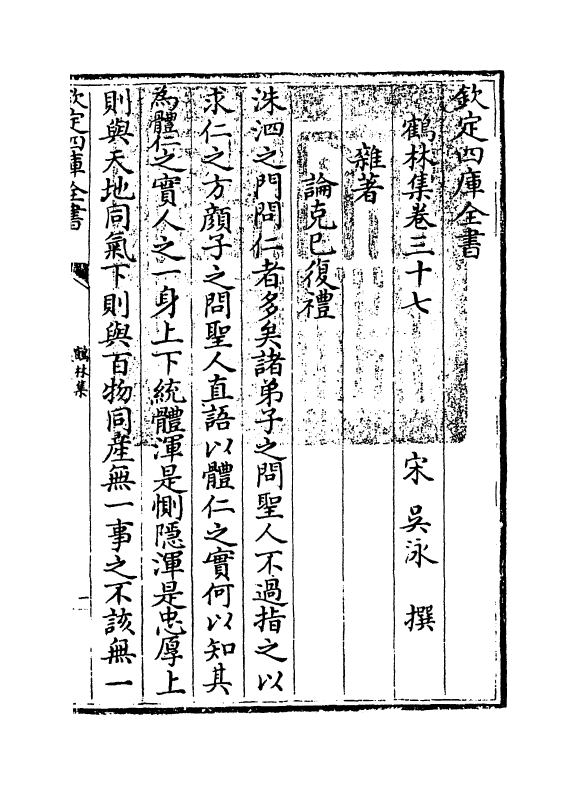 欽定四庫全書
鶴林集卷三十七
宋 吳泳 撰
雜著
論克已復禮
洙泗之門問仁者多矣諸弟子之問聖人不過指之以
求仁之方顔子之問聖人直語以體仁之實何以知其
為體仁之實人之一身上下統體渾是惻隠渾是忠厚上
則與天地同氣下則與百物同産無一事之不該無一
欽定四庫全書
鶴林集
一